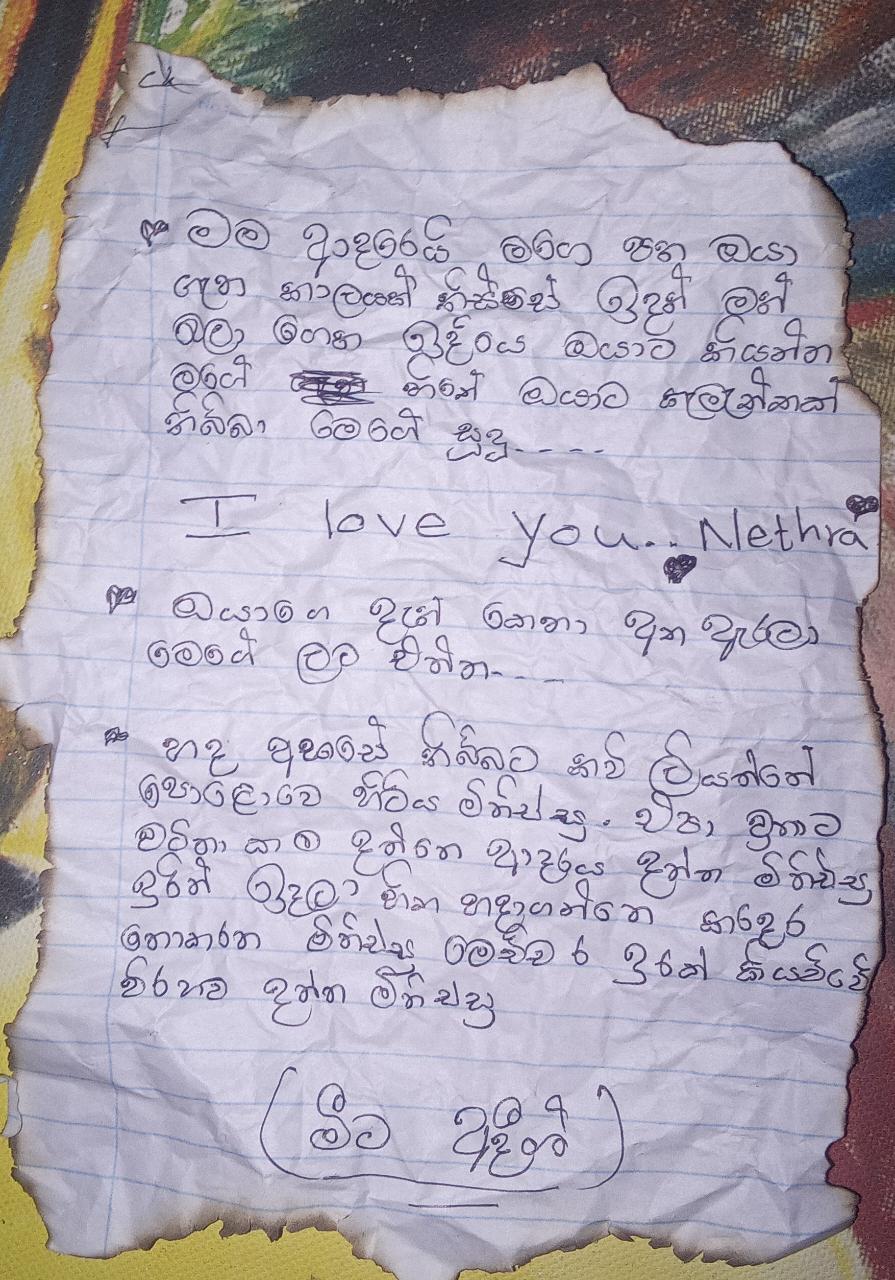 මම ආදරෙයි මගෙ පන ඔයා
ගැන කාලයක් තිස්සේ ඉදන් මන්
බලා ගෙන ඉදියෙ ඔයාට කියන්න
මගේ හිතේ ඔයාට කැමැත්තක්
තිබ්බා මෙගේ සුදු-----
I love you... Nethra
ඔයාගෙ දැන් කෙනා අත ඇරලා
මෙගේ ලට එන්න----
හද අහසේ තිබ්බට කවි ලියන්නේ
පොළොවෙ හිටිය මිනිස්සු. එපා වුනාට
වටිනා කම දන්නෙ ආදරය දන්න මිනිස්සු
ඉරින් ඉදලා හිත හදාගන්නෙ කරදර
නොකරන මිනිස්සු මෙච්ච ර ඉරක් කියව්වේ
විරහව දන්න මිනිස්සු
මීට